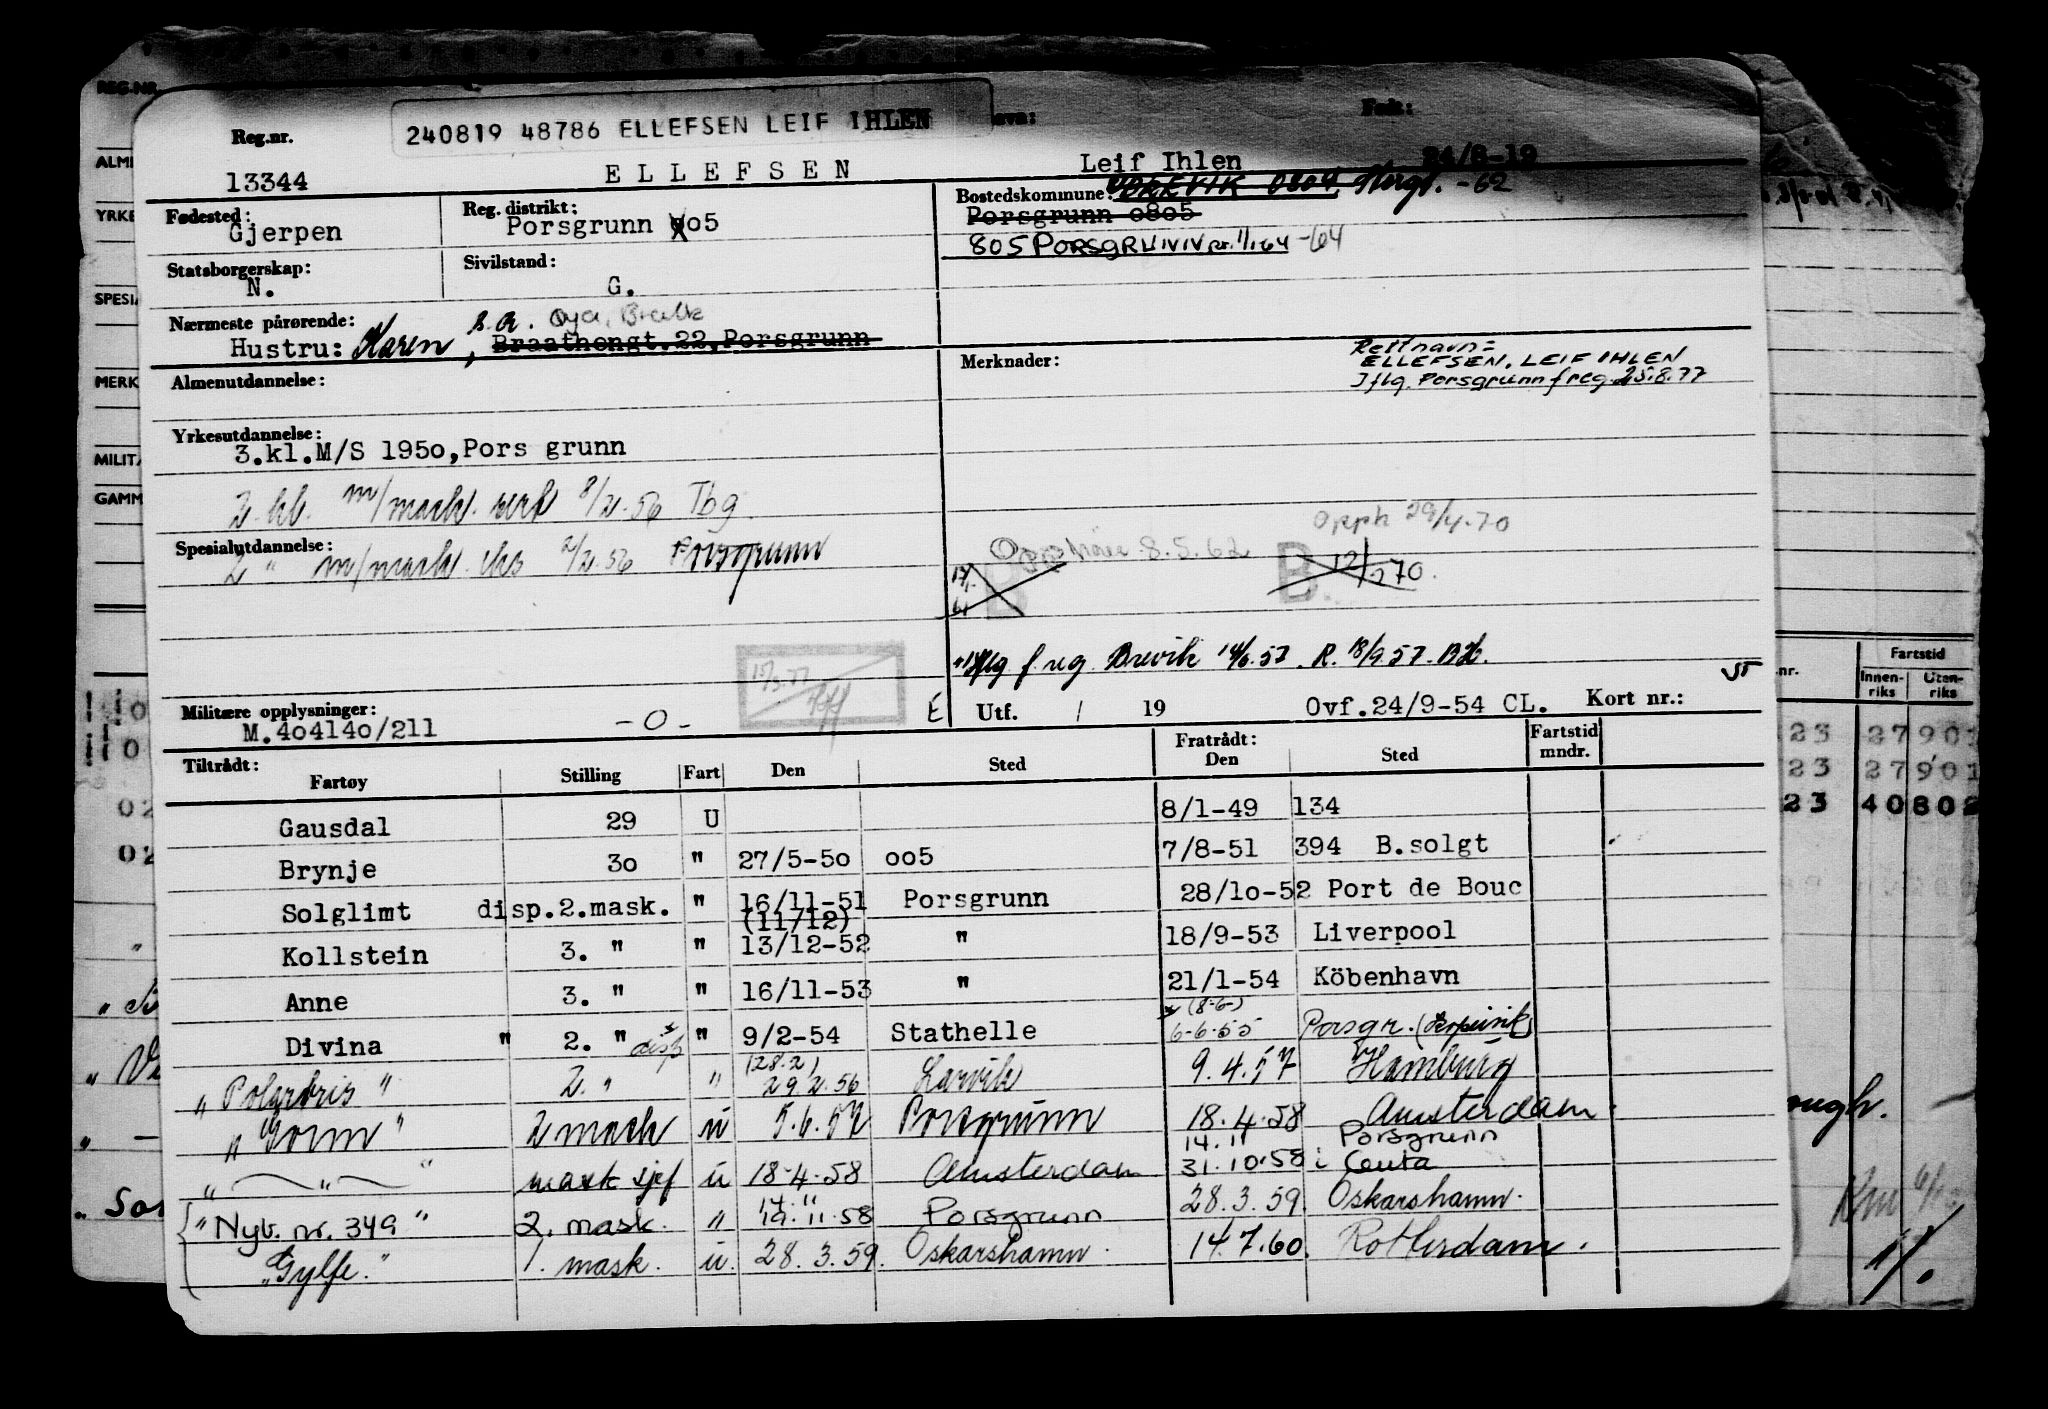 240819 48786 ELLEFSEN LEIF IHLEN
Reg.nr. Født:
13344 ELLEFSEN Leif Ihlen 24/8-19
Fødested: Gjerpen
Reg. distrikt: Porsgrunn 005
Bostedskommune: BREVIK 0804 -62
Porsgrunn 0805
805 PORSGRUNN pr. 1/1 64 -64
Statsborgerskap: N.
Sivilstand: G.
Nærmeste pårørende:
Hustru: Karen, Braathengt.22,Porsgrunn
s.a. Øya, Brevik
Almenutdannelse:
Merknader:
Rett navn=
ELLEFSEN, LEIF IHLEN
Iflg. Porsgrunn freg. 25.8.77
Yrkesutdannelse:
3.kl.M/S 195o,Pors grunn
2. kl. m/mask. 8/2.56 Tbg.
Spesialutdannelse:
2 " m/mask. eks 2/2.56 Porsgrunn
Opph 29/4.70
8.5.62
B 12/ 270.
17/1-61 B
15/3-77
Iflg f.reg. Brevik 14/6.57. R. 18/9.57.
Militære opplysninger: M.4o414o/211 -0-
É Utf. / 19 Ovf.24/9-54 CL. Kort nr.:
Tiltrådt: Fratrådt:
Fartøy Stilling Fart Den Sted Den Sted Fartstid mndr.
Gausdal 29 U 8/1-49 134
Brynje 3o " 27/5-5o oo5 7/8-51 394 B.solgt
Solglimt disp.2.mask. " 16/11-51 Porsgrunn 28/1o-52 Port de Bouc
(11/12)
Kollstein 3. " " 13/12-52 " 18/9-53 Liverpool
Anne 3. " " 16/11-53 " 21/1-54 Köbenhavn
(8-6-)
Divina " 2. " disp " 9/2-54 Stathelle 6-6-55 Porsgr.
(28.2)
"Polarbris" 2. " " 29 2.56 Larvik 9.4.57 Hamburg
"Gorm" 2 mask u 5.6.57 Porsgrunn 18.4.58 Amsterdam
14.11 Porsgrunn
" — " — " mask sjef u 18-4.58 Amsterdam 31.10.58 i Ceuta
14.11
"Nyb. nr. 349" 2. mask. " 19.11.58 Porsgrunn 28.3.59 Oskarshamn.
"Gylfe." 1. mask. u. 28.3.59. Oskarshamn. 14.7.60. Rotterdam.
REG.NR.
ALM
YRKE
SPESIA
MERK
MILITÆ
GAMM
Fartstid
nr. Innen-riks Uten-riks
23 27901
23 27901
23 40802
02
02